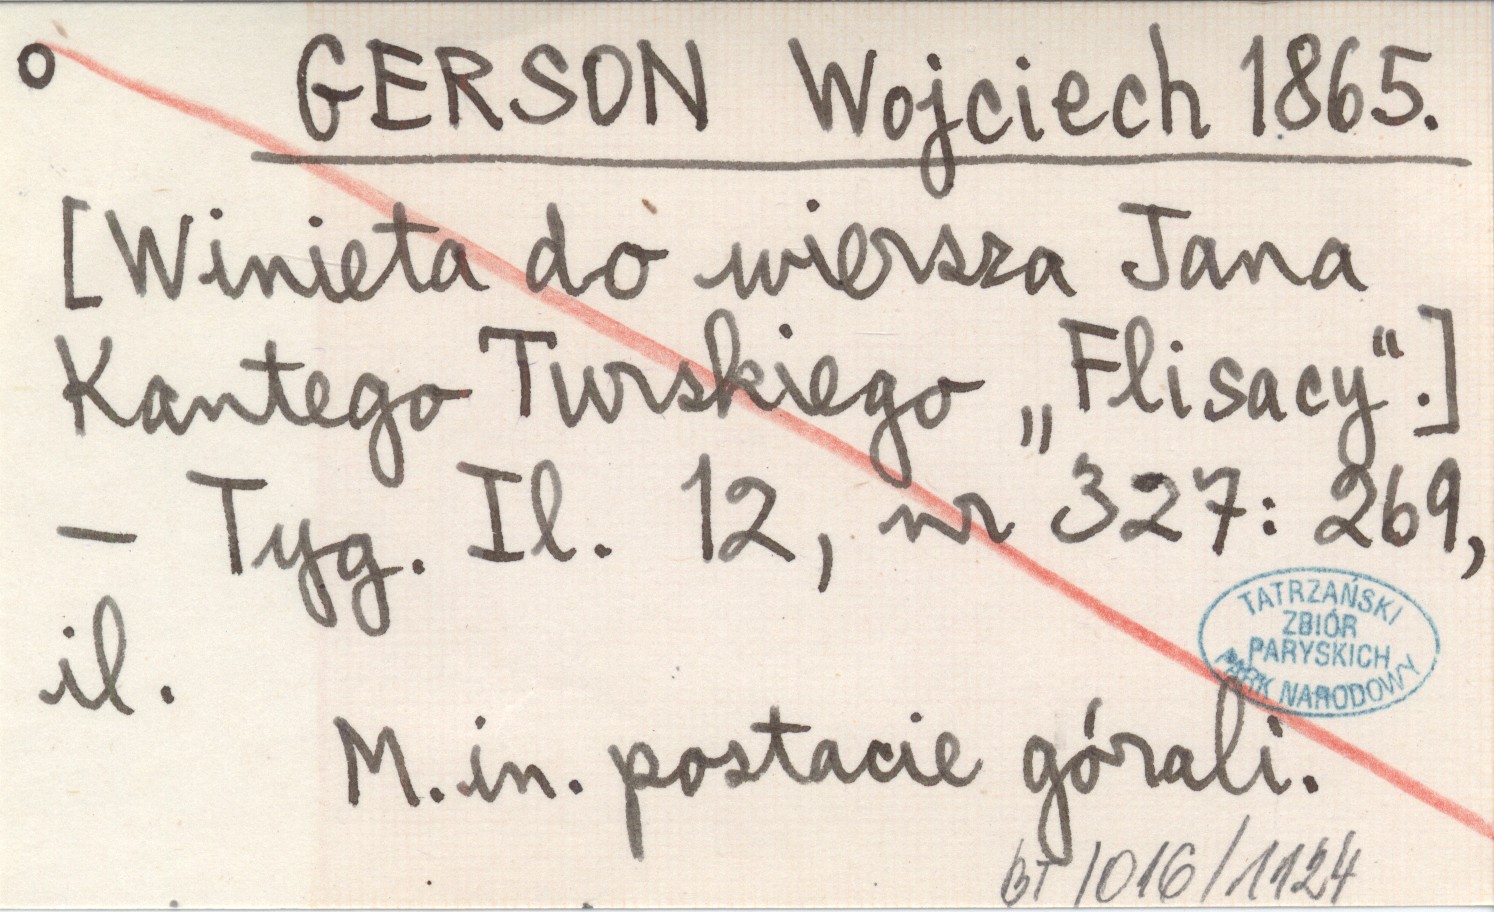 o GERSON Wojciech 1865.
[Winieta do wiersza Jana
Kantego Turskiego „Flisacy“.]
– Tyg. Il. 12, nr 327: 269,
il.
TATRZAŃSKI
ZBIÓR
PARYSKICH
PARK NARODOWY
M.in. postacie górali.
BT/016/1124